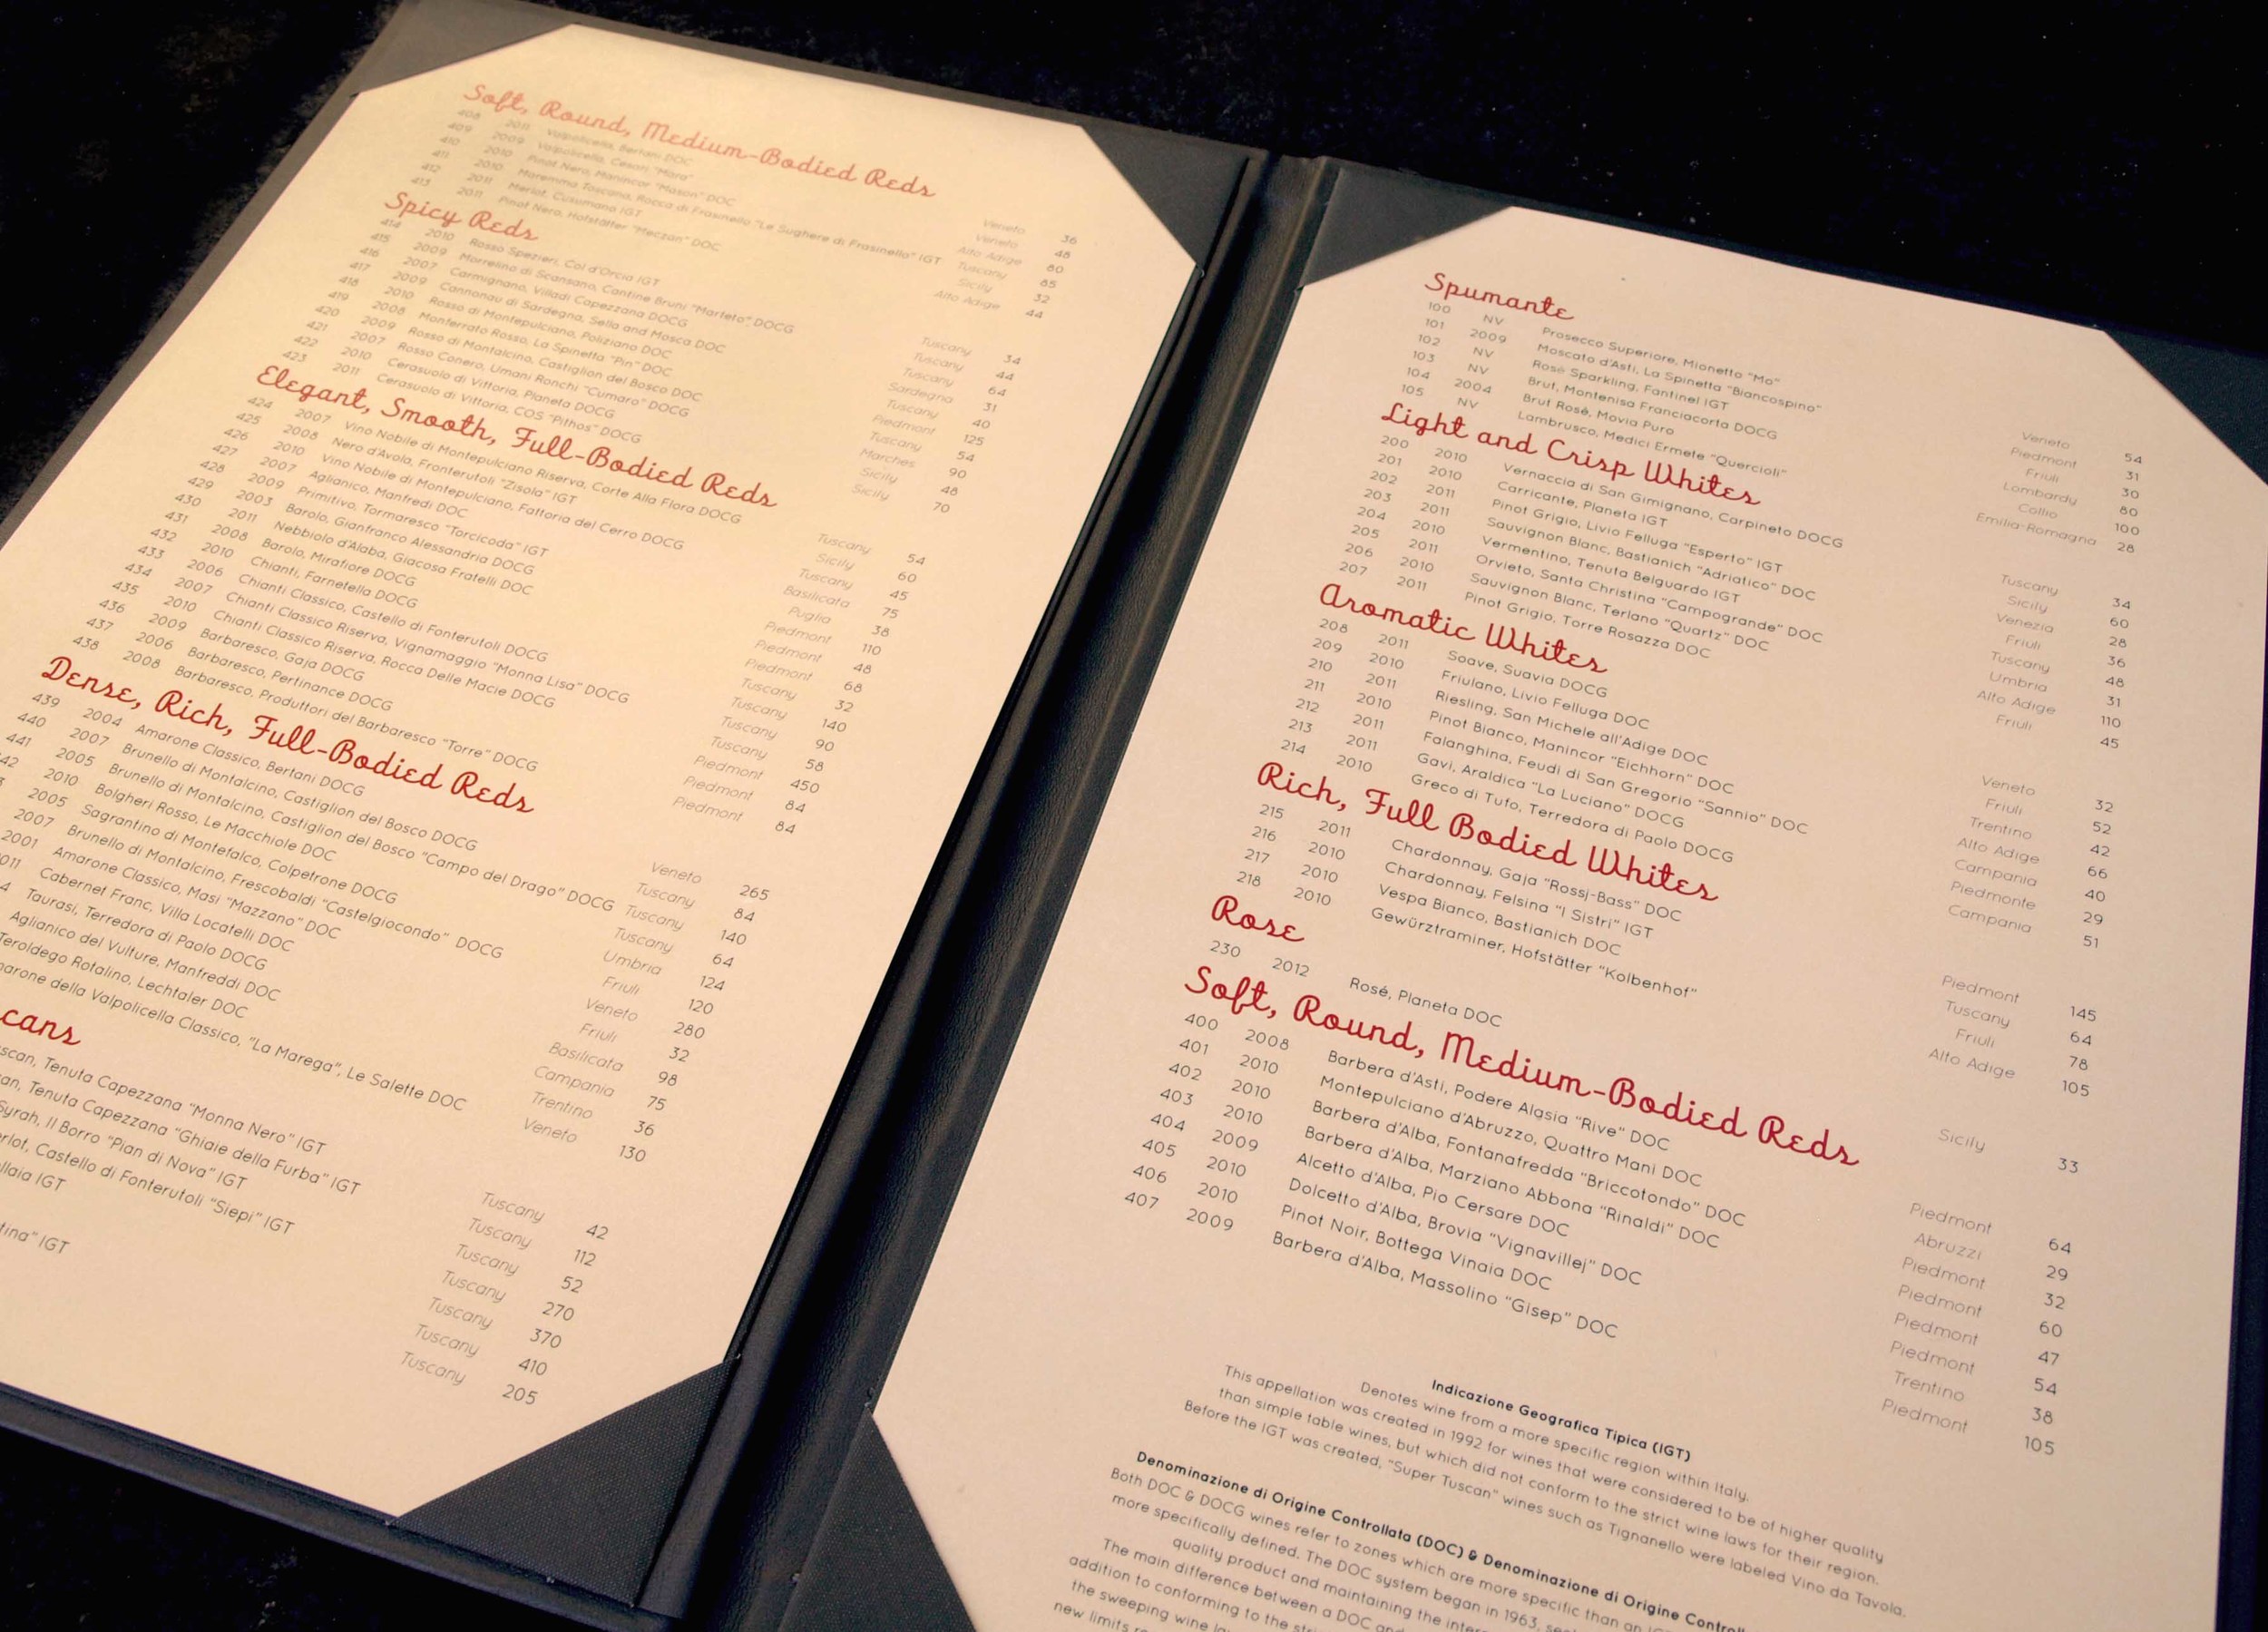 Soft, Round, Medium-Bodied Reds
408 2011 Valpolicella, Bertani DOC Veneto 36
409 2009 Valpolicella, Cesari "Mara" Veneto 48
410 2010 Pinot Nero, Manincor "Mason" DOC Alto Adige 80
411 2010 Maremma Toscana, Rocca di Frasinello "Le Sughere di Frasinello" IGT Tuscany 85
412 2011 Merlot, Cusumano IGT Sicily 32
413 2011 Pinot Nero, Hofstätter "Meczan" DOC Alto Adige 44
Spicy Reds
414 2010 Rosso Spezieri, Col d'Orcia IGT Tuscany 34
415 2009 Morrelino di Scansano, Cantine Bruni "Marteto" DOCG Tuscany 44
416 2007 Carmignano, Villadi Capezzana DOCG Tuscany 64
417 2009 Cannonau di Sardegna, Sella and Mosca DOC Sardegna 31
418 2010 Rosso di Montepulciano, Poliziano DOC Tuscany 40
419 2008 Monferrato Rosso, La Spinetta "Pin" DOC Piedmont 125
420 2009 Rosso di Montalcino, Castiglion del Bosco DOC Tuscany 54
421 2007 Rosso Conero, Umani Ronchi "Cumaro" DOCG Marches 90
422 2010 Cerasuolo di Vittoria, Planeta DOCG Sicily 48
423 2011 Cerasuolo di Vittoria, COS "Pithos" DOCG Sicily 70
Elegant, Smooth, Full-Bodied Reds
424 2007 Vino Nobile di Montepulciano Riserva, Corte Alla Flora DOCG Tuscany 54
425 2008 Nero d'Avola, Fronterutoli "Zisola" IGT Sicily 60
426 2010 Vino Nobile di Montepulciano, Fattoria del Cerro DOCG Tuscany 45
427 2007 Aglianico, Manfredi DOC Basilicata 75
428 2009 Primitivo, Tormaresco "Torcicoda" IGT Puglia 38
429 2003 Barolo, Gianfranco Alessandria DOCG Piedmont 110
430 2011 Nebbiolo d'Alaba, Giacosa Fratelli DOC Piedmont 48
431 2008 Barolo, Mirafiore DOCG Piedmont 68
432 2010 Chianti, Farnetella DOCG Tuscany 32
433 2006 Chianti Classico, Castello di Fonterutoli DOCG Tuscany 140
434 2007 Chianti Classico Riserva, Vignamaggio "Monna Lisa" DOCG Tuscany 90
435 2010 Chianti Classico Riserva, Rocca Delle Macie DOCG Tuscany 58
436 2009 Barbaresco, Gaja DOCG Piedmont 450
437 2006 Barbaresco, Pertinance DOCG Piedmont 84
438 2008 Barbaresco, Produttori del Barbaresco "Torre" DOCG Piedmont 84
Dense, Rich, Full-Bodied Reds
439 2004 Amarone Classico, Bertani DOCG Veneto 265
440 2007 Brunello di Montalcino, Castiglion del Bosco DOCG Tuscany 84
441 2005 Brunello di Montalcino, Castiglion del Bosco "Campo del Drago" DOCG Tuscany 140
42 2010 Bolgheri Rosso, Le Macchiole DOC Tuscany 64
2005 Sagrantino di Montefalco, Colpetrone DOCG Umbria 124
2007 Brunello di Montalcino, Frescobaldi "Castelgiocondo" DOCG Friuli 120
2001 Amarone Classico, Masi "Mazzano" DOC Veneto 280
011 Cabernet Franc, Villa Locatelli DOC Friuli 32
4 Taurasi, Terredora di Paolo DOCG Basilicata 98
Aglianico del Vulture, Manfreddi DOC Campania 75
Teroldego Rotalino, Lechtaler DOC Trentino 36
marone della Valpolicella Classico, "La Marega", Le Salette DOC Veneto 130
cans
scan, Tenuta Capezzana "Monna Nero" IGT Tuscany 42
an, Tenuta Capezzana "Ghiaie della Furba" IGT Tuscany 112
Syrah, Il Borro "Pian di Nova" IGT Tuscany 52
erlot, Castello di Fonterutoli "Siepi" IGT Tuscany 270
llaia IGT Tuscany 370
Tuscany 410
tina" IGT Tuscany 205
Spumante
100 NV Prosecco Superiore, Mionetto "Mo" Veneto 54
101 2009 Moscato d'Asti, La Spinetta "Biancospino" Piedmont 31
102 NV Rosé Sparkling, Fantinel IGT Friuli 30
103 NV Brut, Montenisa Franciacorta DOCG Lombardy 80
104 2004 Brut Rosé, Movia Puro Collio 100
105 NV Lambrusco, Medici Ermete "Quercioli" Emilia-Romagna 28
Light and Crisp Whites
200 2010 Vernaccia di San Gimignano, Carpineto DOCG Tuscany 34
201 2010 Carricante, Planeta IGT Sicily 60
202 2011 Pinot Grigio, Livio Felluga "Esperto" IGT Venezia 28
203 2011 Sauvignon Blanc, Bastianich "Adriatico" DOC Friuli 36
204 2010 Vermentino, Tenuta Belguardo IGT Tuscany 48
205 2011 Orvieto, Santa Christina "Campogrande" DOC Umbria 31
206 2010 Sauvignon Blanc, Terlano "Quartz" DOC Alto Adige 110
207 2011 Pinot Grigio, Torre Rosazza DOC Friuli 45
Aromatic Whites
208 2011 Soave, Suavia DOCG Veneto 32
209 2010 Friulano, Livio Felluga DOC Friuli 52
210 2011 Riesling, San Michele all'Adige DOC Trentino 42
211 2010 Pinot Bianco, Manincor "Eichhorn" DOC Alto Adige 66
212 2011 Falanghina, Feudi di San Gregorio "Sannio" DOC Campania 40
213 2011 Gavi, Araldica "La Luciano" DOCG Piedmonte 29
214 2010 Greco di Tufo, Terredora di Paolo DOCG Campania 51
Rich, Full Bodied Whites
215 2011 Chardonnay, Gaja "Rossj-Bass" DOC Piedmont 145
216 2010 Chardonnay, Felsina "I Sistri" IGT Tuscany 64
217 2010 Vespa Bianco, Bastianich DOC Friuli 78
218 2010 Gewürztraminer, Hofstätter "Kolbenhof" Alto Adige 105
Rose
230 2012 Rosé, Planeta DOC Sicily 33
Soft, Round, Medium-Bodied Reds
400 2008 Barbera d'Asti, Podere Alasia "Rive" DOC Piedmont 64
401 2010 Montepulciano d'Abruzzo, Quattro Mani DOC Abruzzi 29
402 2010 Barbera d'Alba, Fontanafredda "Briccotondo" DOC Piedmont 32
403 2010 Barbera d'Alba, Marziano Abbona "Rinaldi" DOC Piedmont 60
404 2009 Alcetto d'Alba, Pio Cersare DOC Piedmont 47
405 2010 Dolcetto d'Alba, Brovia "Vignavillej" DOC Piedmont 54
406 2010 Pinot Noir, Bottega Vinaia DOC Trentino 38
407 2009 Barbera d'Alba, Massolino "Gisep" DOC Piedmont 105
Indicazione Geografica Tipica (IGT)
Denotes wine from a more specific region within Italy.
This appellation was created in 1992 for wines that were considered to be of higher quality
than simple table wines, but which did not conform to the strict wine laws for their region.
Before the IGT was created, "Super Tuscan" wines such as Tignanello were labeled Vino da Tavola.
Denominazione di Origine Controllata (DOC) & Denominazione di Origine Controll
Both DOC & DOCG wines refer to zones which are more specific than an IG
more specifically defined. The DOC system began in 1963, see
quality product and maintaining the inter
The main difference between a DOC and
addition to conforming to the stri
the sweeping wine la
new limits r